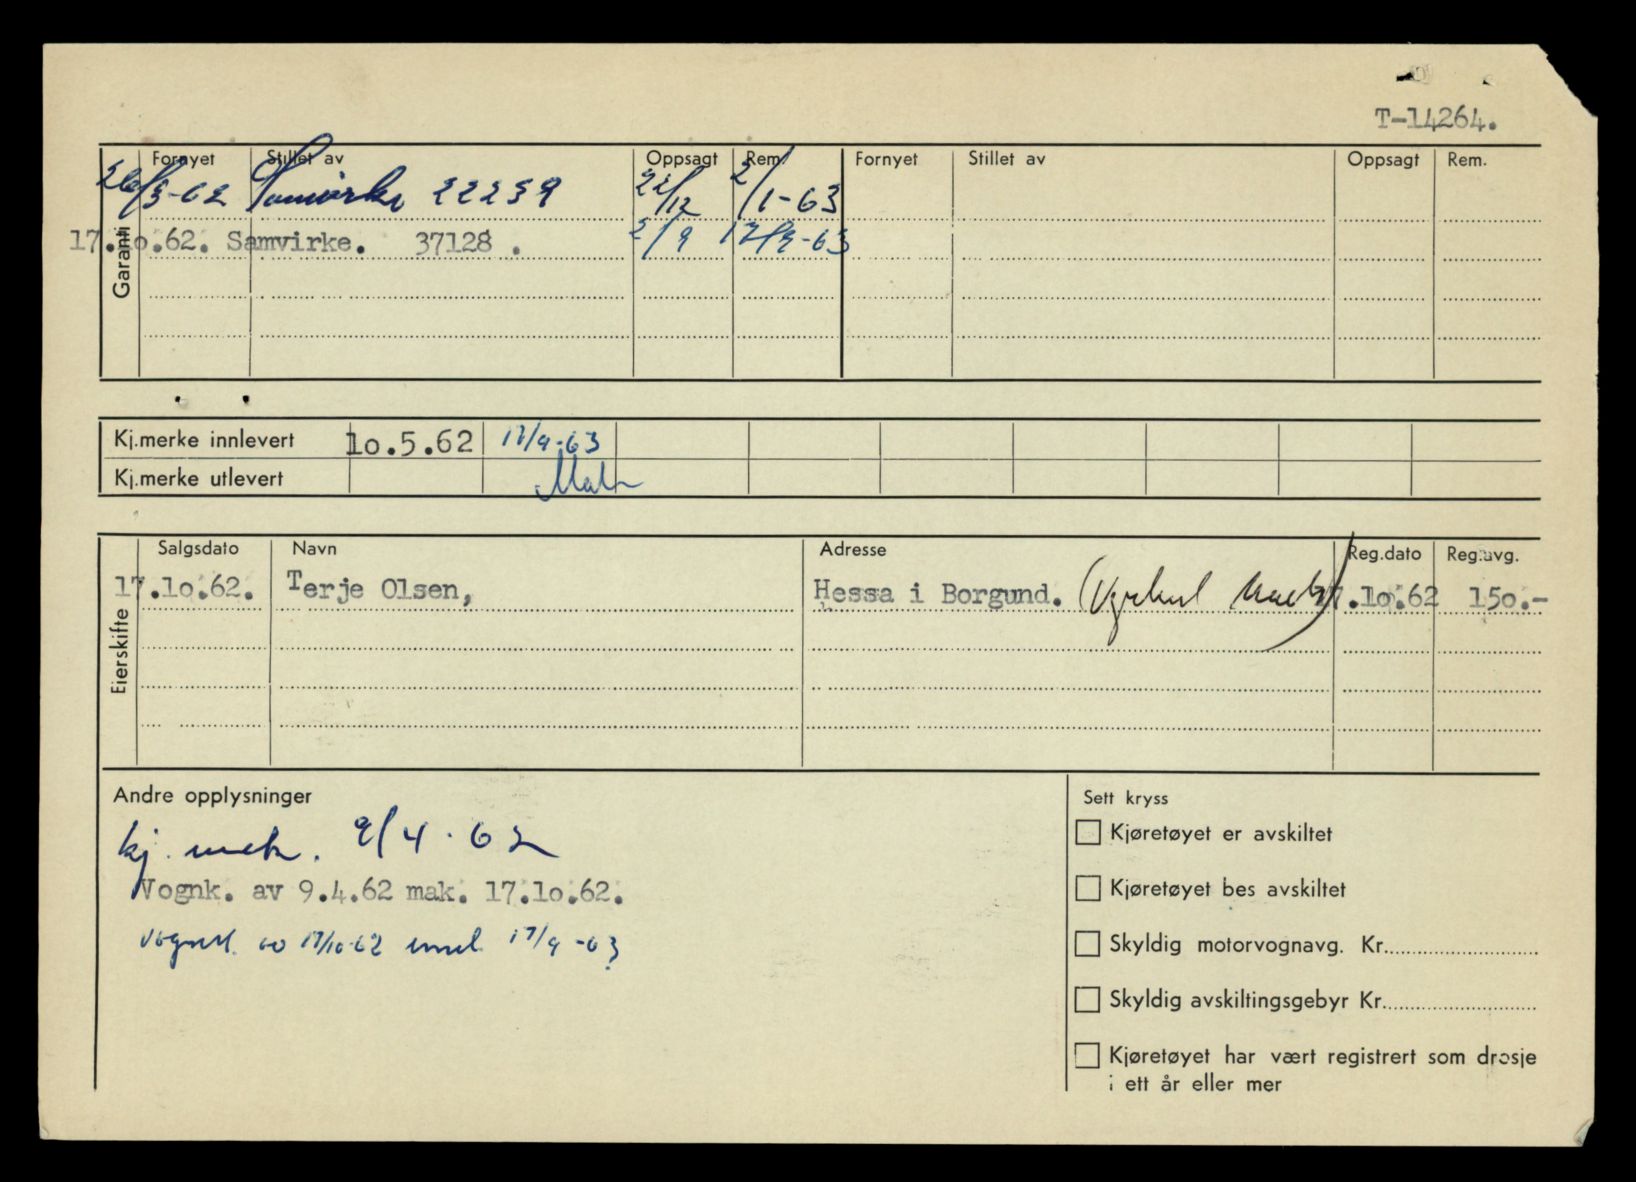 T-14264.
Fornyet Stillet av Oppsagt Rem. Fornyet Stillet av Oppsagt Rem.
26/3-62 Samvirke 22239 22/12 2/1-63
17.10.62. Samvirke. 37128 . 2/9 17/9-63
Garanti
Kj.merke innlevert 10.5.62 17/9-63
Kj.merke utlevert Mak
Salgsdato Navn Adresse Reg.dato Reg.avg.
17.10.62. Terje Olsen, Hessa i Borgund. 17.10.62 150.-
Eierskifte
Andre opplysninger
kj. merk. 9/4.62
Vognk. av 9.4.62 mak. 17.10.62.
Vognk. av 17/10-62 innl. 17/9-63
Sett kryss
Kjøretøyet er avskiltet
Kjøretøyet bes avskiltet
Skyldig motorvognavg. Kr.
Skyldig avskiltingsgebyr Kr.
Kjøretøyet har vært registrert som drosje
i ett år eller mer